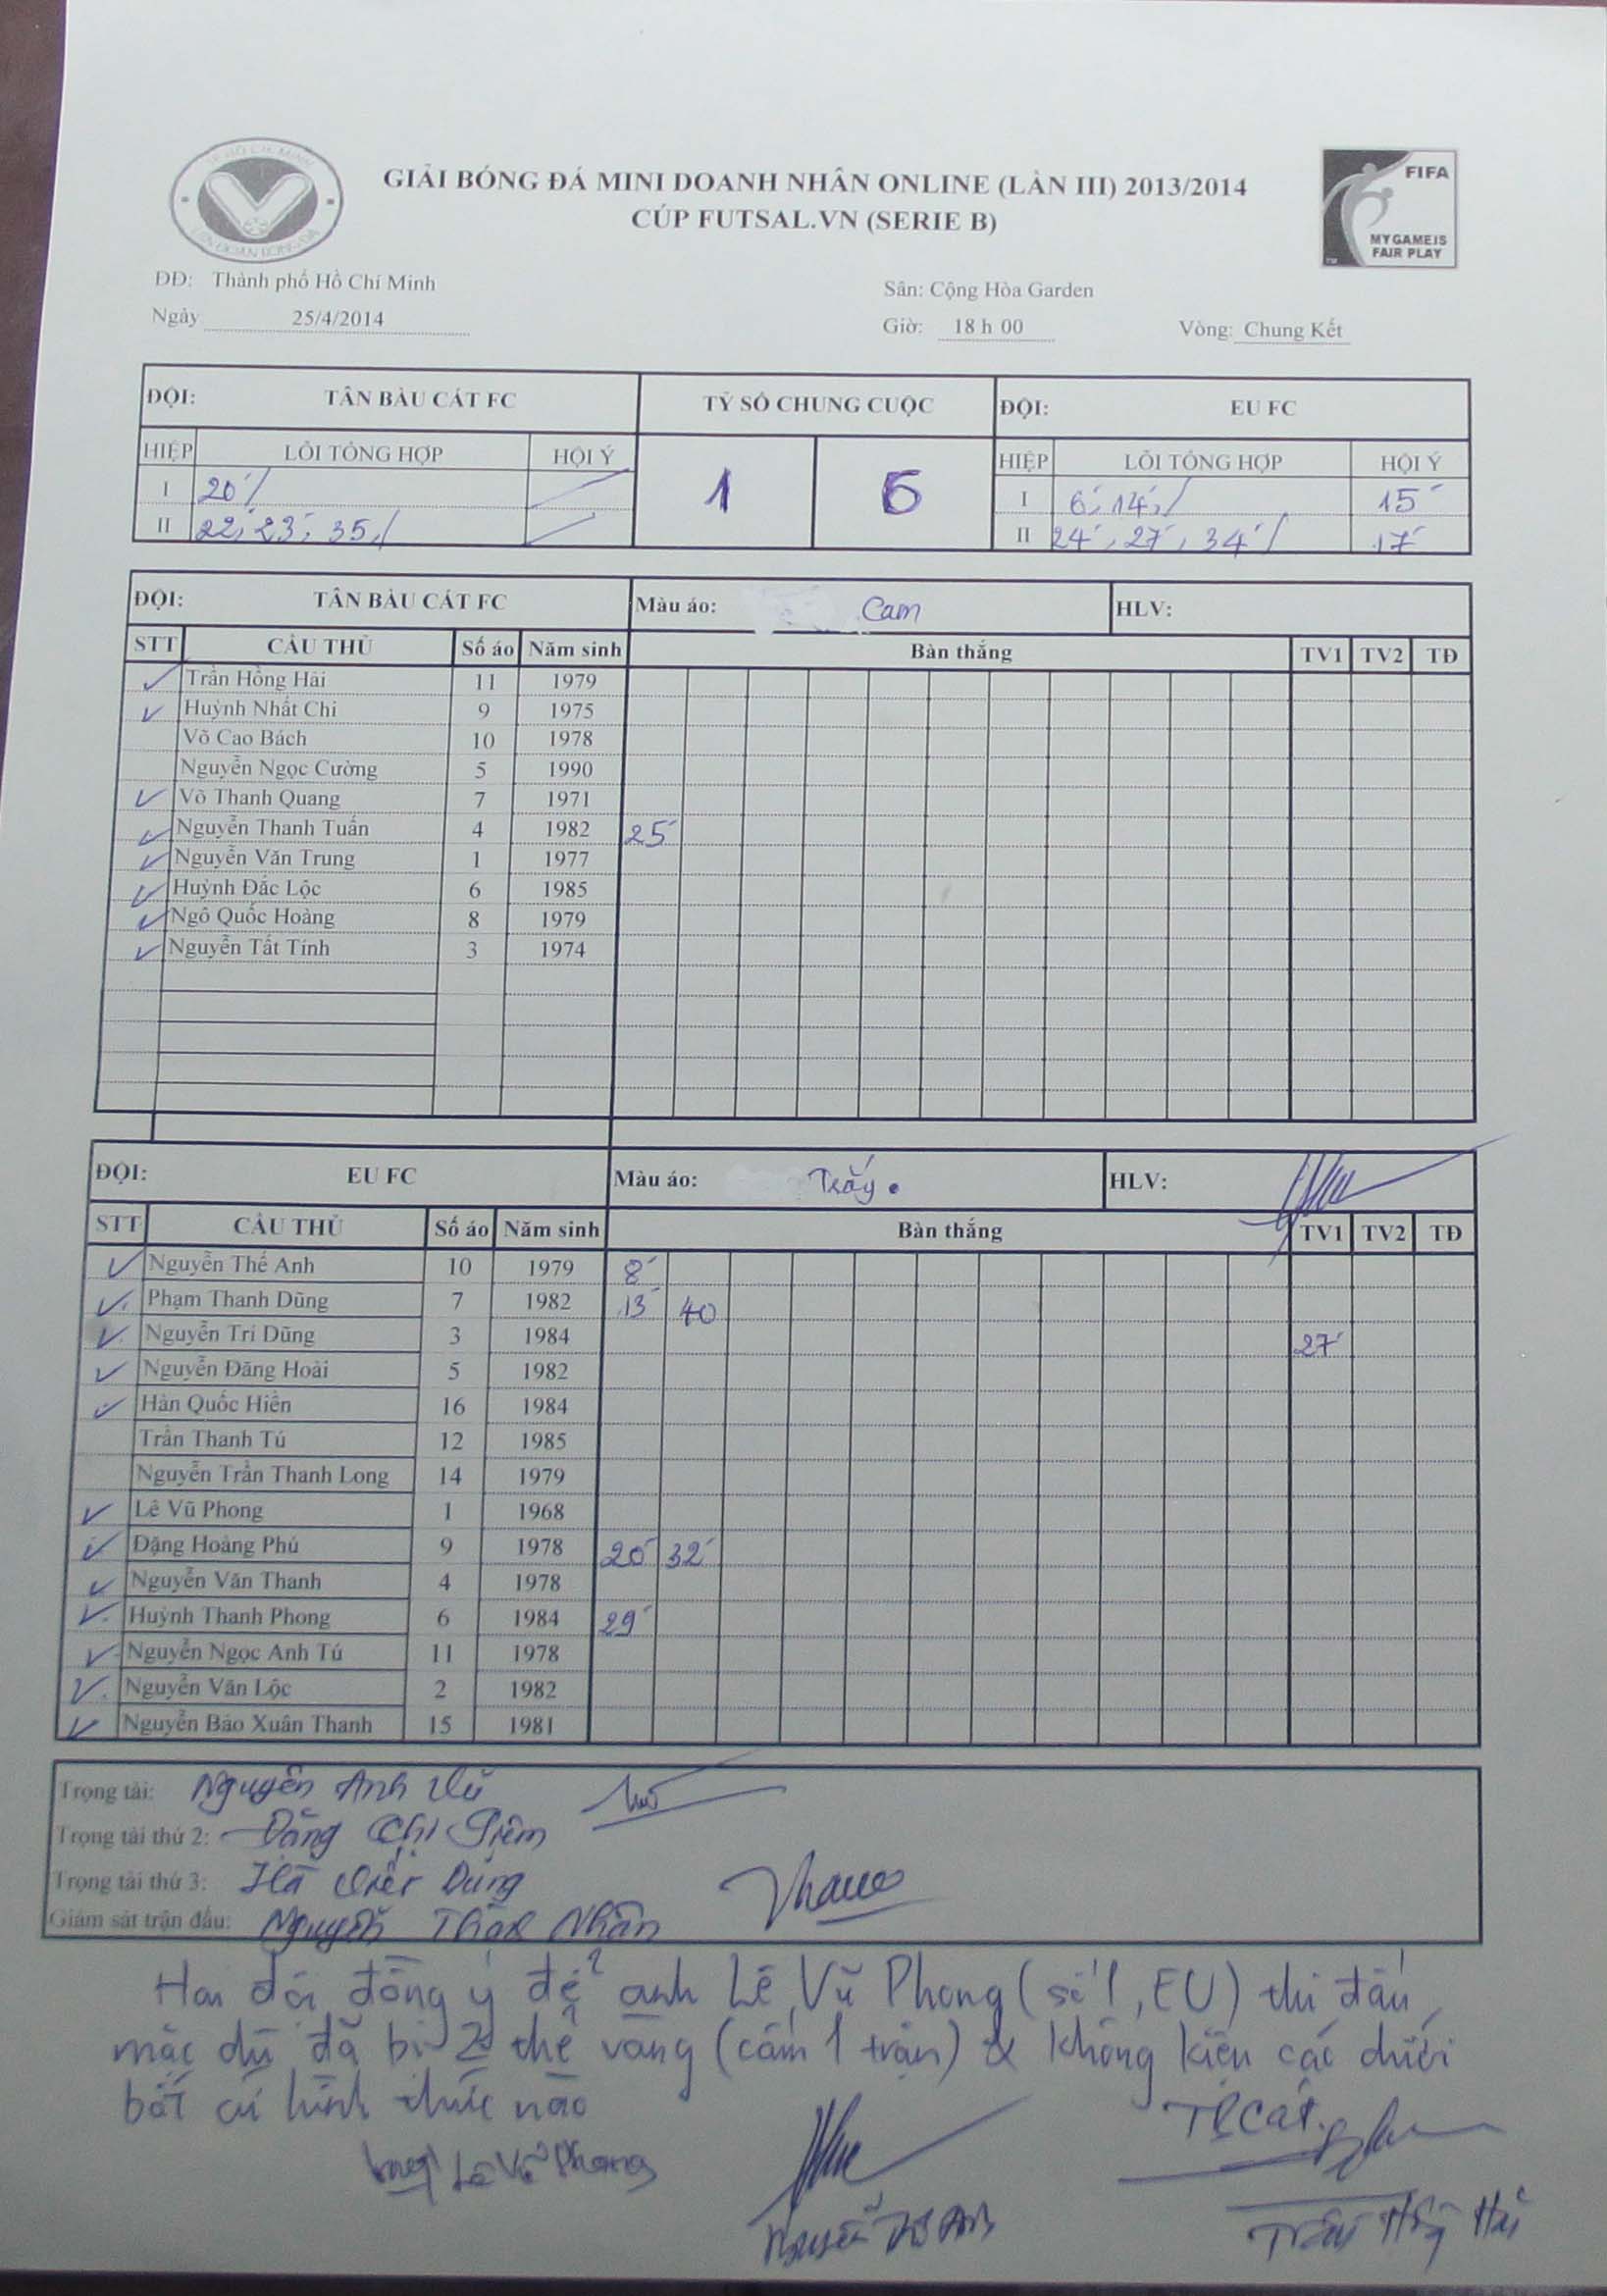 GIẢI BÓNG ĐÁ MINI DOANH NHÂN ONLINE (LẦN III) 2013/2014
CÚP FUTSAL.VN (SERIE B)
FIFA
MY GAME IS
FAIR PLAY
ĐĐ: Thành phố Hồ Chí Minh
Sân: Cộng Hòa Garden
Ngày 25/4/2014
Giờ: 18 h 00 Vòng: Chung Kết
ĐỘI: TÂN BÀU CÁT FC TỶ SỐ CHUNG CUỘC ĐỘI: EU FC
HIỆP LỖI TỔNG HỢP HỘI Ý 1 6 HIỆP LỖI TỔNG HỢP HỘI Ý
I 20' I 6', 14', 15'
II 22', 23', 35', II 24', 27', 34' 17'
ĐỘI: TÂN BÀU CÁT FC Màu áo: Cam HLV:
STT CẦU THỦ Số áo Năm sinh Bàn thắng TV1 TV2 TĐ
Trần Hồng Hải 11 1979
Huỳnh Nhất Chi 9 1975
Võ Cao Bách 10 1978
Nguyễn Ngọc Cường 5 1990
Võ Thanh Quang 7 1971
Nguyễn Thanh Tuấn 4 1982 25'
Nguyễn Văn Trung 1 1977
Huỳnh Đắc Lộc 6 1985
Ngô Quốc Hoàng 8 1979
Nguyễn Tất Tính 3 1974
ĐỘI: EU FC Màu áo: Trắng HLV:
STT CẦU THỦ Số áo Năm sinh Bàn thắng TV1 TV2 TĐ
Nguyễn Thế Anh 10 1979 8'
Phạm Thanh Dũng 7 1982 13' 40
Nguyễn Trí Dũng 3 1984 27'
Nguyễn Đăng Hoài 5 1982
Hàn Quốc Hiền 16 1984
Trần Thanh Tú 12 1985
Nguyễn Trần Thanh Long 14 1979
Lê Vũ Phong 1 1968
Đặng Hoàng Phú 9 1978 20' 32'
Nguyễn Văn Thanh 4 1978
Huỳnh Thanh Phong 6 1984 29'
Nguyễn Ngọc Anh Tú 11 1978
Nguyễn Văn Lộc 2 1982
Nguyễn Bảo Xuân Thanh 15 1981
Trọng tài: Nguyễn Anh Vũ
Trọng tài thứ 2: Đặng Chí
Trọng tài thứ 3: Hà Dũng
Giám sát trận đấu: Nguyễn Nhân
Hai đội đồng ý để anh Lê Vũ Phong (số 1, EU) thi đấu
mặc dù đã bị 2 thẻ vàng (cấm 1 trận) & không kiện cáo dưới
bất cứ hình thức nào
Lê Vũ Phong
Nguyễn Thế Anh
Trần Hồng Hải